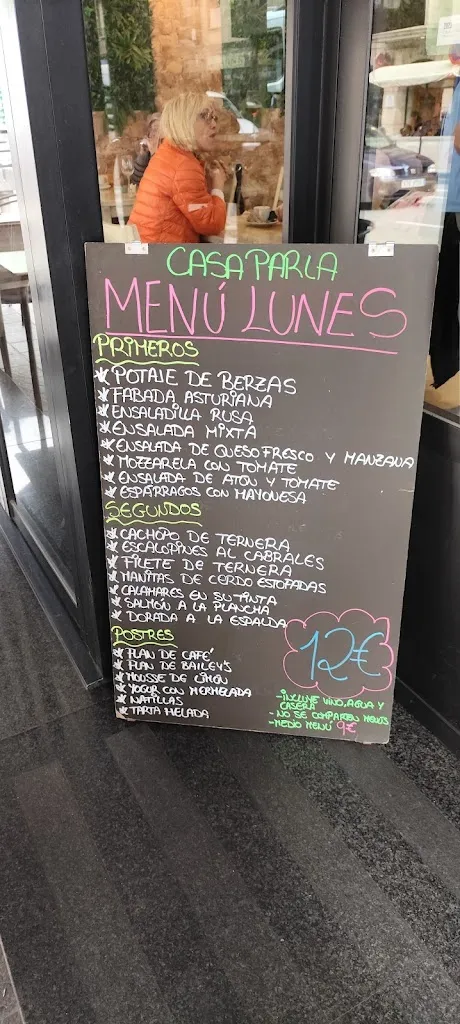 CASA PARLA
MENÚ LUNES
PRIMEROS
POTAJE DE BERZAS
FABADA ASTURIANA
ENSALADILLA RUSA
ENSALADA MIXTA
ENSALADA DE QUESO FRESCO Y MANZANA
MOZZARELA CON TOMATE
ENSALADA DE ATÚN Y TOMATE
ESPÁRRAGOS CON MAYONESA
SEGUNDOS
CACHOPO DE TERNERA
ESCALOPINES AL CABRALES
FILETE DE TERNERA
MANITAS DE CERDO ESTOFADAS
CALAMARES EN SU TINTA
SALMÓN A LA PLANCHA
DORADA A LA ESPALDA
POSTRES
FLAN DE CAFÉ
FLAN DE BAILEY'S
MOUSSE DE LIMÓN
YOGUR CON MERMELADA
NATILLAS
TARTA HELADA
12€
-INCLUYE VINO, AGUA Y
CASERA
-NO SE COMPARTEN MENÚS
-MEDIO MENÚ 9€